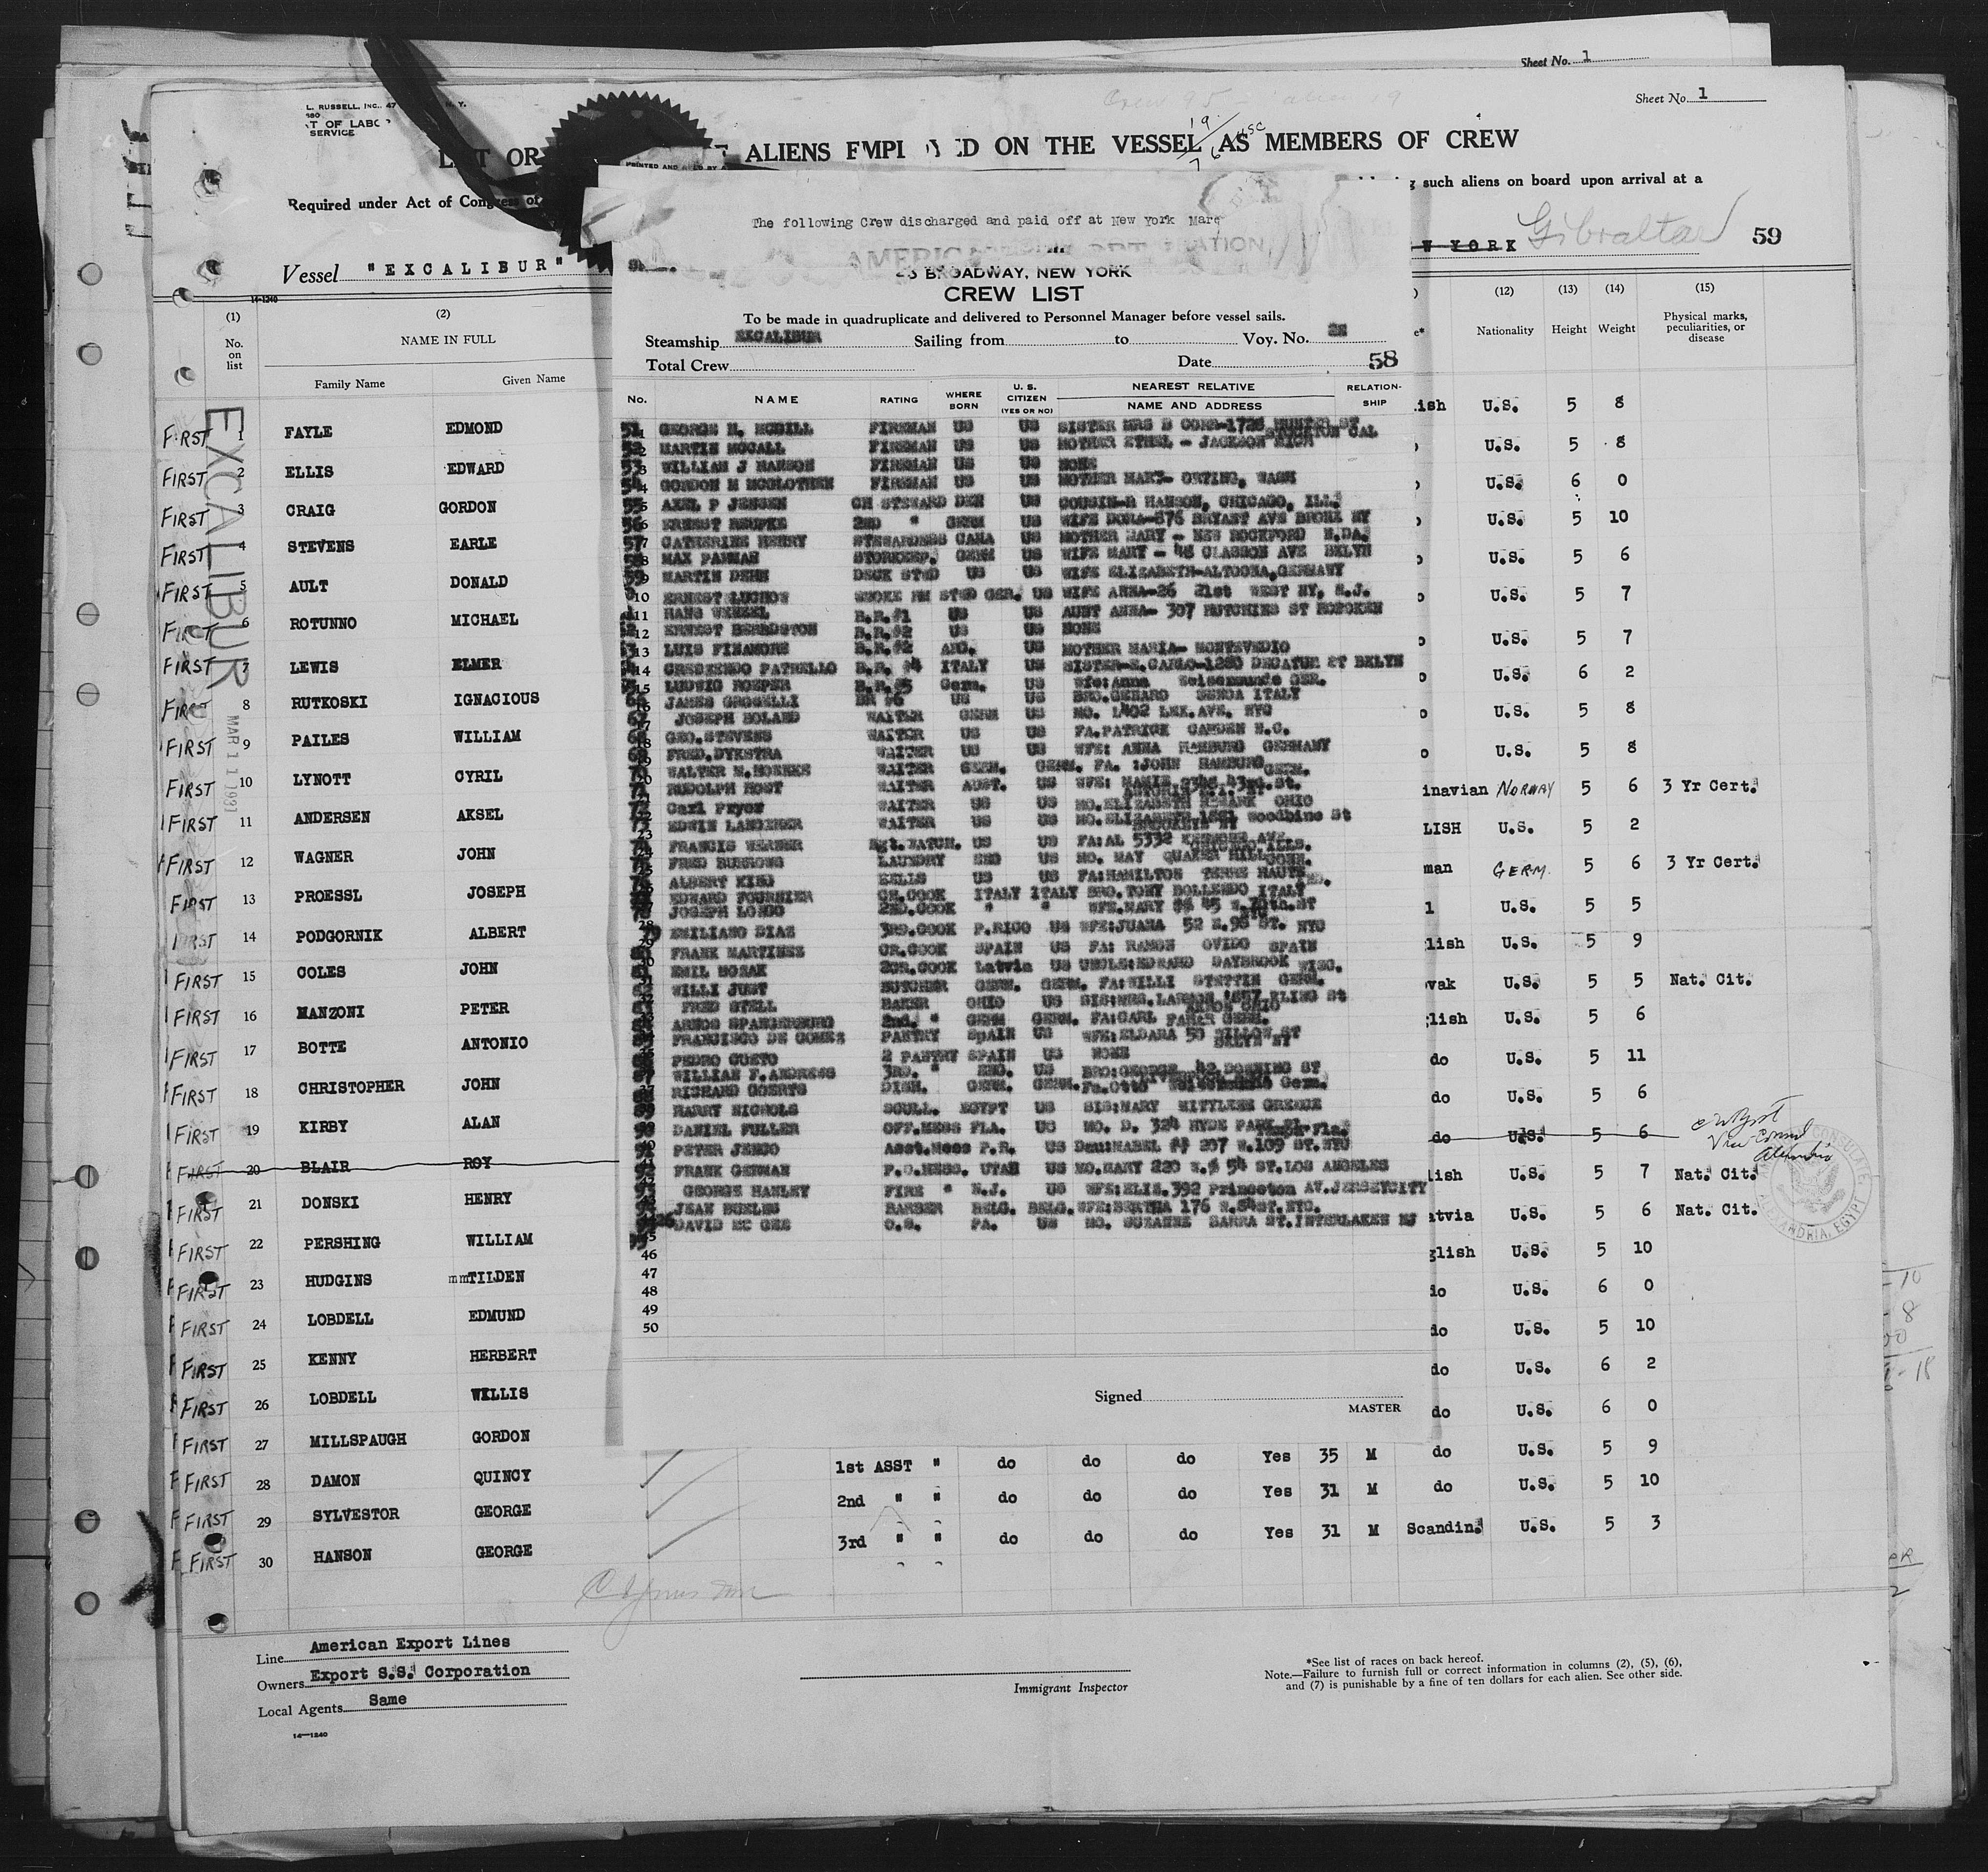 Sheet No. 1
L. RUSSELL, INC., 47 N. Y.
T OF LABO
SERVICE
Sheet No. 1
LIST OR ALIENS EMPLOYED ON THE VESSEL AS MEMBERS OF CREW
Required under Act of Congress of such aliens on board upon arrival at a
Vessel "EXCALIBUR" W YORK Gibraltar 59
14-1240
(1) (2) (12) (13) (14) (15)
No. on list NAME IN FULL Nationality Height Weight Physical marks, peculiarities, or disease
Family Name Given Name
EXCALIBUR
MAR 11 1931
FIRST 1 FAYLE EDMOND
FIRST 2 ELLIS EDWARD
FIRST 3 CRAIG GORDON
FIRST 4 STEVENS EARLE
FIRST 5 AULT DONALD
FIRST 6 ROTUNNO MICHAEL
FIRST 7 LEWIS ELMER
FIRST 8 RUTKOSKI IGNACIOUS
FIRST 9 PAILES WILLIAM
FIRST 10 LYNOTT CYRIL
FIRST 11 ANDERSEN AKSEL
FIRST 12 WAGNER JOHN
FIRST 13 PROESSL JOSEPH
FIRST 14 PODGORNIK ALBERT
FIRST 15 COLES JOHN
FIRST 16 MANZONI PETER
FIRST 17 BOTTE ANTONIO
FIRST 18 CHRISTOPHER JOHN
FIRST 19 KIRBY ALAN
FIRST 20 BLAIR ROY
FIRST 21 DONSKI HENRY
FIRST 22 PERSHING WILLIAM
FIRST 23 HUDGINS mmTILDEN
FIRST 24 LOBDELL EDMUND
FIRST 25 KENNY HERBERT
FIRST 26 LOBDELL WILLIS
FIRST 27 MILLSPAUGH GORDON
FIRST 28 DAMON QUINCY
FIRST 29 SYLVESTOR GEORGE
FIRST 30 HANSON GEORGE
The following Crew discharged and paid off at New York Marc
BROADWAY, NEW YORK
CREW LIST
To be made in quadruplicate and delivered to Personnel Manager before vessel sails.
Steamship EXCALIBUR Sailing from to Voy. No.
Total Crew Date 58
No. NAME RATING WHERE BORN U. S. CITIZEN (YES OR NO) NEAREST RELATIVE NAME AND ADDRESS RELATIONSHIP
51 GEORGE H. MCGILL FIREMAN US US SISTER MRS B
STOCKTON CAL
52 MARTIN MCCALL FIREMAN US US MOTHER ETHEL - JACKSON MICH
53 WILLIAM J HANSON FIREMAN US US NONE
54 GORDON M MCGLOTHEN FIREMAN US US MOTHER MARY- ORTING, WASH
55 AXEL P JENSEN CH STEWARD DEN US COUSIN-R HANSON, CHICAGO, ILL.
56 ERNEST REUPKE 2ND " GERM US WIFE DORA-876 BRYANT AVE BRONX NY
57 CATHERINE HENRY STEWARDESS CANA US MOTHER MARY - NEW ROCKFORD N.DA.
58 MAX PANMAN STOREKEEP. GERM US WIFE MARY - 48 CLASSON AVE BKLYN
59 MARTIN DEHN DECK STWD US US WIFE ELIZABETH-ALTOONA, GERMANY
10 ERNEST LUCHOW SMOKE RM STWD GER. US WIFE ANNA-26 21st WEST NY, N.J.
11 HANS WENZEL B.R.#1 US US AUNT ANNA- 307 HUTCHINS ST HOBOKEN
12 ERNEST B.R.#2 US US NONE
13 LUIS FINAMORE B.R.#2 US MOTHER MARIA- MONTEVEDIO
14 CRESZENDO PATRELLO B.R. #4 ITALY US SISTER-E.CARLO-1280 DECATUR ST BKLYN
15 LUDWIG ROEPER B.R.#5 Germ. US Wfe:Anna GER.
66 JAMES GROSELLI BR #6 US US BRO.GENARO GENOA ITALY
67 JOSEPH BOLAND WAITER GERM US MO. 1402 LEX.AVE. NYC
68 GEO.STEVENS WAITER US US FA.PATRICK CAMDEN N.C.
69 FRED.DYKSTRA WAITER US US WFE: ANNA HAMBURG GERMANY
70 WALTER M. WAITER GERM. GERM. FA. :JOHN HAMBURG GERM.
71 RUDOLPH HOST WAITER AUST. US WFE: MAMIE 43rd.St.
72 Carl Pryor WAITER US US MO.ELIZABETH NEWARK OHIO
73 EDWIN WAITER US US MO.ELIZABETH Woodbine St
74 FRANCIS WERNER Ngt.WATCH. US US FA:AL 5332 AVE.
75 FRED BURROWS LAUNDRY US MO. MAY QUAKER HILL CONN.
76 ALBERT KING BELLS US US FA:HAMILTON TERRE HAUTE
77 EDWARD FOURNIER CH.COOK ITALY ITALY BRO.TONY BOLLENDO ITALY
78 JOSEPH LONGO 2ND.COOK " " WFE.MARY
79 EMILIANO DIAZ 3RD.COOK P.RICO US WFE:JUANA 52 E.98 ST. NYC
80 FRANK MARTINEZ CR.COOK SPAIN US FA: RAMON OVIDO SPAIN
81 EMIL NOZAK 2CR.COOK Latvia US UNCLE:EDWARD DAYBROOK WISC.
82 WILLI JUST BUTCHER GERM. GERM. FA:WILLI STETTIN GERM.
83 FRED STELL BAKER OHIO US SIS:MRS. LARSON KLING St
AKRON OHIO
84 ARNOS SPANGENBURG 2nd. " GERM GERM. FA:CARL GERM.
85 FRANCISCO DE GOMEZ PASTRY SpAIN US WFE:ELDARA 50 WILLOW ST
BKLYN NY
86 PEDRO CUETO 2 PASTRY SPAIN US NONE
87 WILLIAM F.ANDRESS 3RD. " ENG. US BRO:GEORGE 42 DOWNING ST
88 RICHARD GOERTS DISH. GERM. GERM. Fa.Otto Germ.
89 HARRY NICHOLS SCULL. EGYPT US SIS:MARY MITYLENE GREECE
90 DANIEL FULLER OFF.MESS FLA. US MO. D. 324 HYDE PARK Pl. Fla.
91 PETER JENGO Asst.Mess P.R. US Dau:MABEL ## 207 W.109 ST.NYC
92 FRANK GERMAN P.O.MESS. UTAH US MO.MARY 220 W. 54 ST.LOS ANGELES
93 GEORGE HANLEY FIRE " N.J. US WFE:ELIS.392 Princeton AV.JERSEYCITY
JEAN BUELNS BARBER BELG. BELG. WFE:BERTHA 176 W.84ST.NYC.
DAVID MC GEE O.S. PA. US MO. SUZANNE BARRA ST.INTERLAKEN NJ
46
47
48
49
50
Signed
MASTER
ish U.S. 5 8
U.S. 5 8
U.S. 6 0
U.S. 5 10
U.S. 5 6
U.S. 5 7
U.S. 5 7
U.S. 6 2
U.S. 5 8
U.S. 5 8
inavian NORWAY 5 6 3 Yr Cert.
LISH U.S. 5 2
man GERM. 5 6 3 Yr Cert.
U.S. 5 5
lish U.S. 5 9
vak U.S. 5 5 Nat. Cit.
lish U.S. 5 6
do U.S. 5 11
do U.S. 5 6
do U.S. 5 6
lish U.S. 5 7 Nat. Cit.
atvia U.S. 5 6 Nat. Cit.
glish U.S. 5 10
do U.S. 6 0
do U.S. 5 10
do U.S. 6 2
do U.S. 6 0
1st ASST " do do do Yes 35 M do U.S. 5 9
2nd " " do do do Yes 31 M do U.S. 5 10
3rd " " do do do Yes 31 M Scandin. U.S. 5 3
Line American Export Lines
Owners Export S.S. Corporation
Local Agents Same
14-1240
Immigrant Inspector
*See list of races on back hereof.
Note.—Failure to furnish full or correct information in columns (2), (5), (6),
and (7) is punishable by a fine of ten dollars for each alien. See other side.